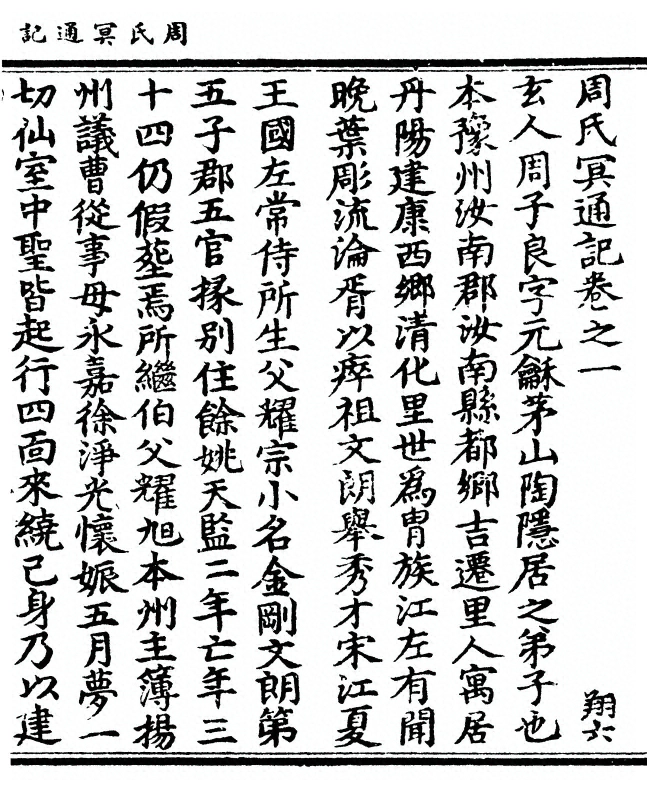 周氏冥通記
周氏冥通記卷之一
翔六
玄人周子良字元龢茅山陶隱居之弟子也
本豫州汝南郡汝南縣都鄉吉遷里人寓居
丹陽建康西鄉清化里世為冑族江左有聞
晚葉彫流淪胥以瘁祖文朗舉秀才宋江夏
王國左常侍所生父耀宗小名金剛文朗第
五子郡五官掾別住餘姚天監二年亡年三
十四仍假塟焉所繼伯父耀旭本州主簿揚
州議曹從事母永嘉徐淨光懷娠五月夢一
切仙室中聖皆起行四面來繞己身乃以建